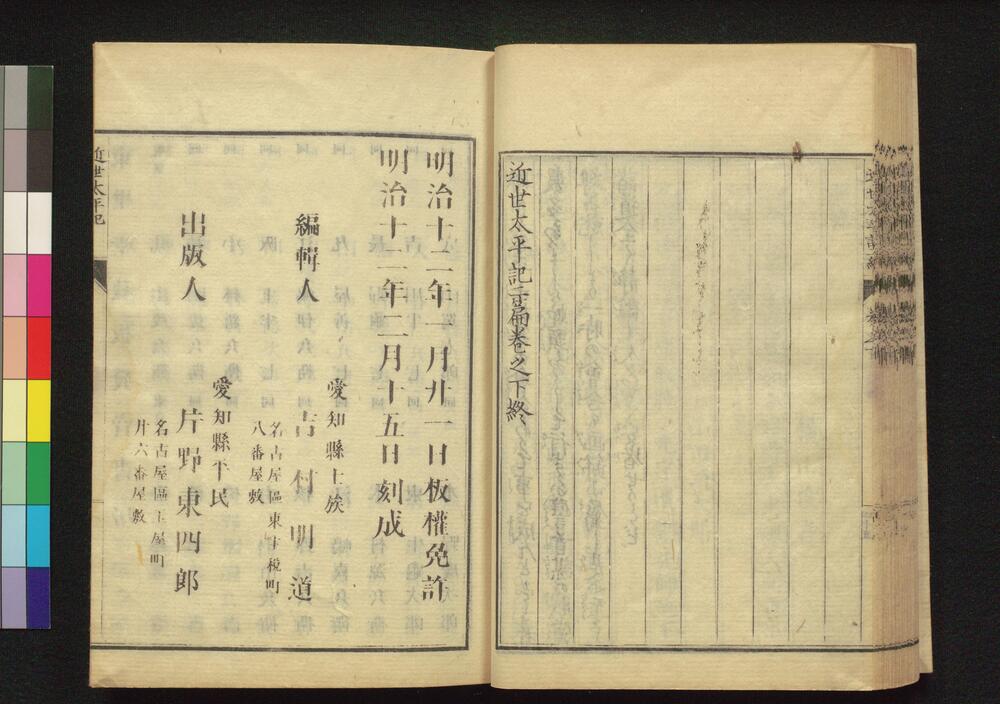 近世太平記二篇巻之下終
明治十二年一月廿一日板權免許
明治十二年二月十五日刻成
愛知縣士族
編輯人
吉村明道
名古屋區東主税町
八番屋敷
愛知縣平民
出版人
片野東四郎
名古屋區玉屋町
廾六番屋敷
近世太平記